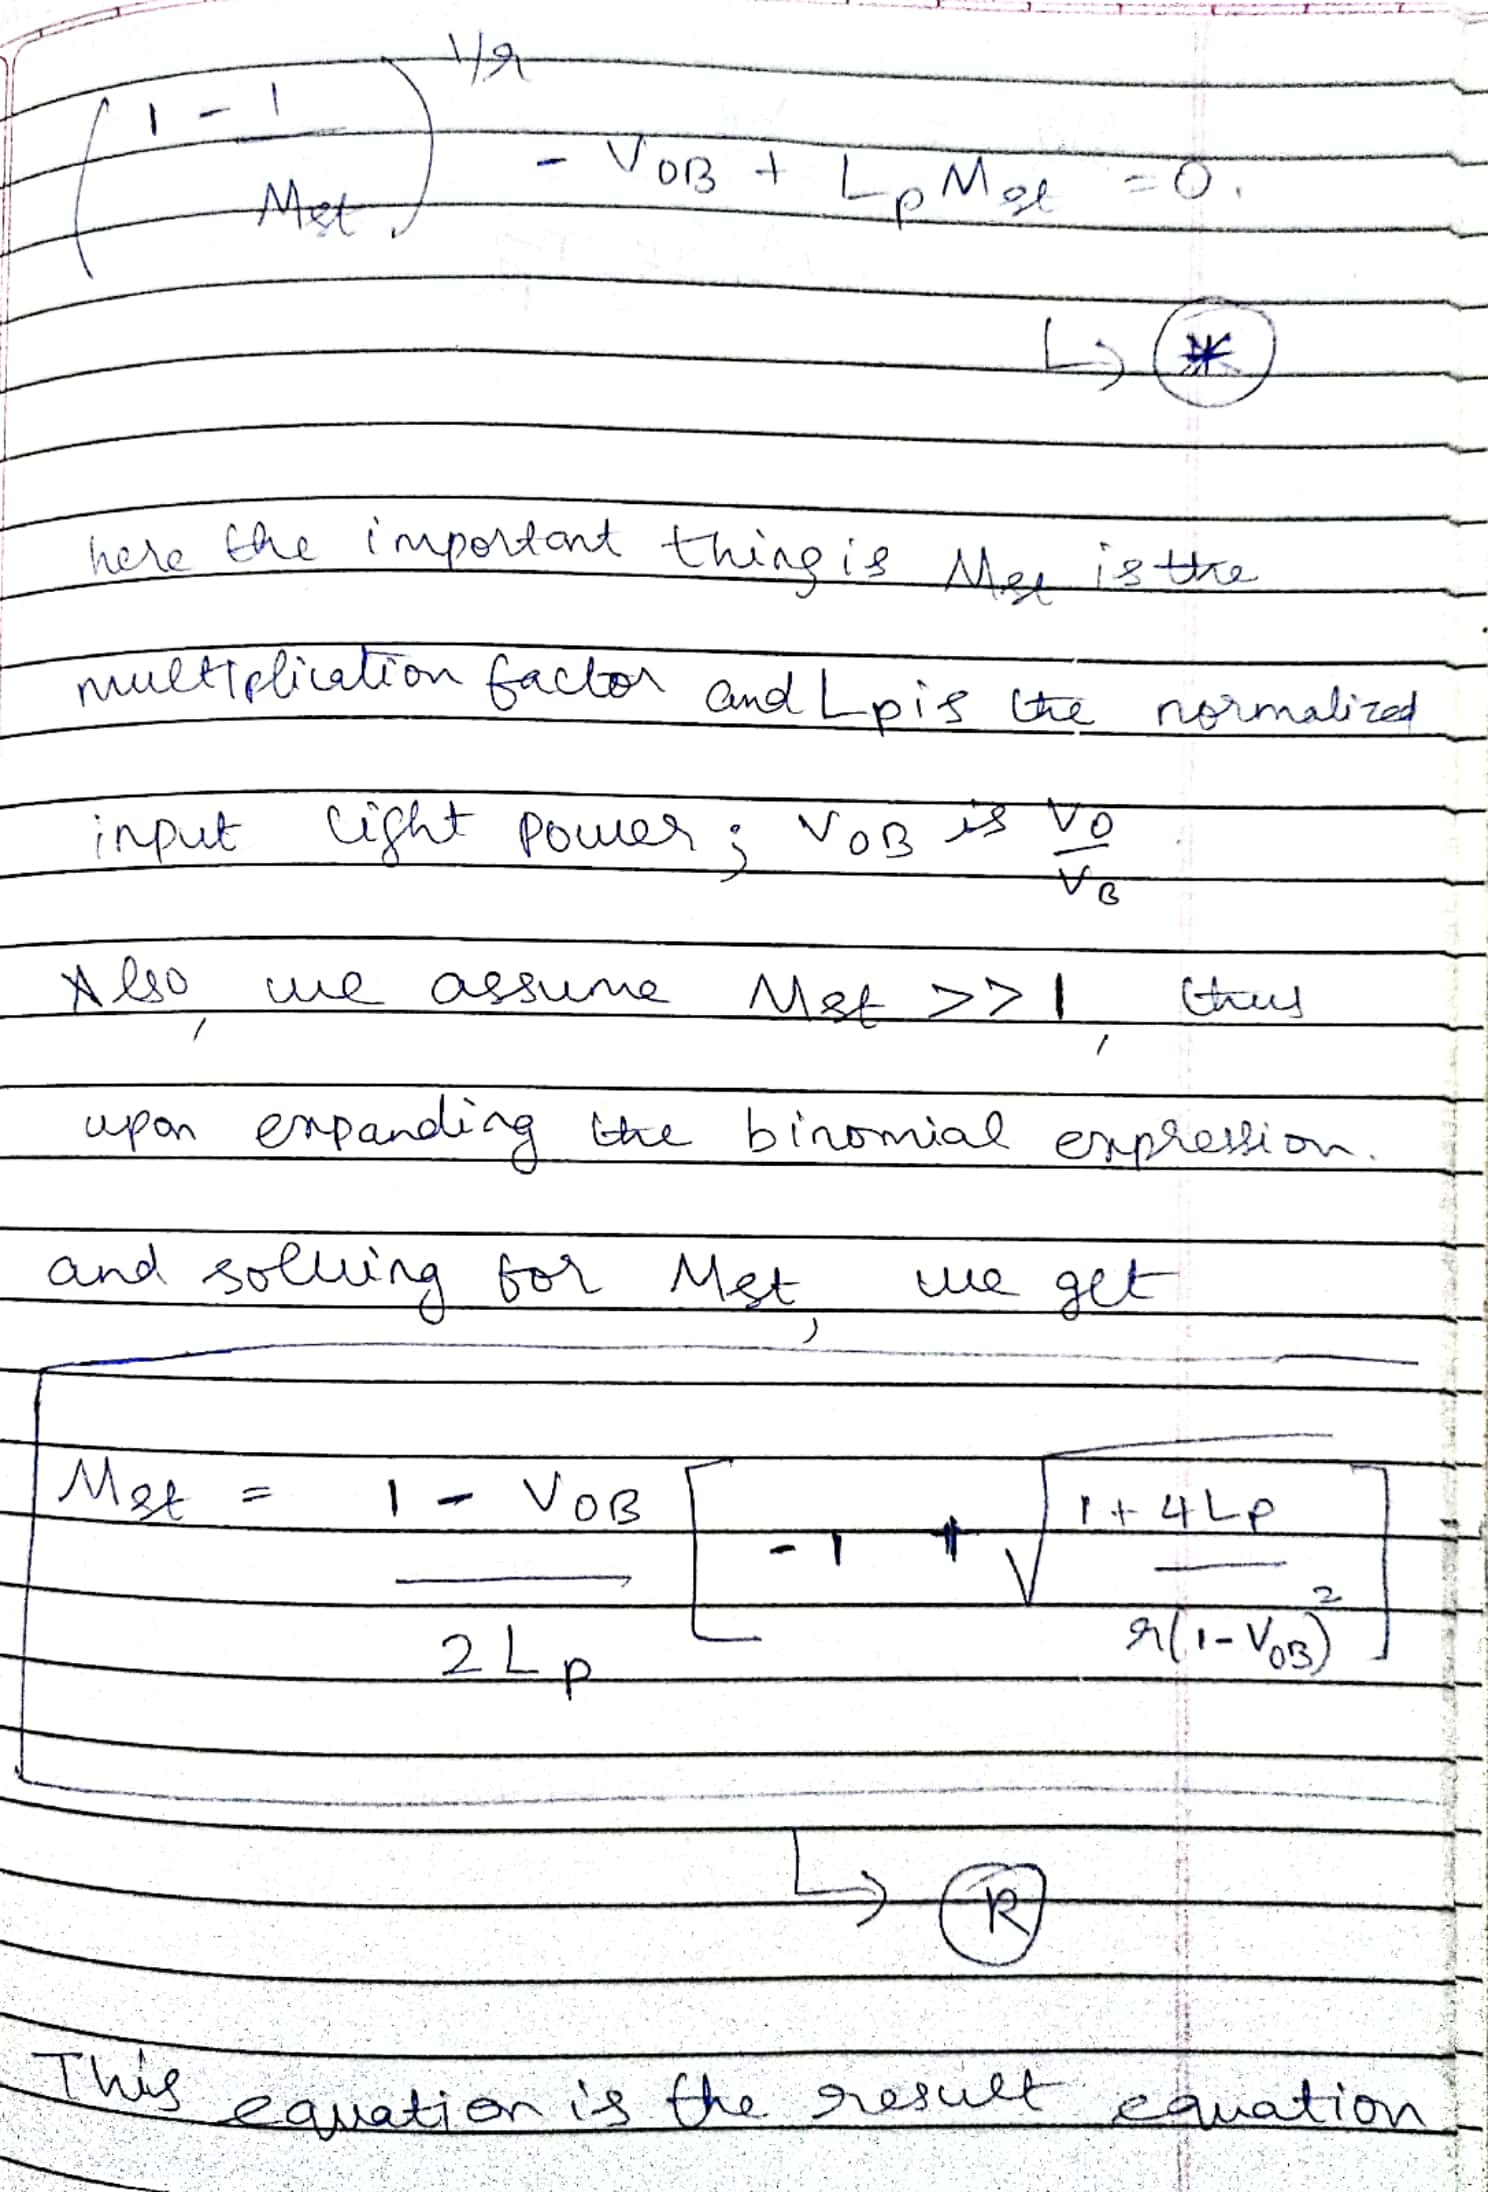 (1 - 1/Mst)^1/r - VOB + LpMst = 0.
↳ *
here the important thing is Mst is the
multiplication factor and Lp is the normalized
input light power; VOB is VO/VB
Also, we assume Mst >> 1, thus
upon expanding the binomial expression.
and solving for Mst, we get
Mst = 1 - VOB/2Lp [-1 + √1 + 4Lp/r(1-VOB)^2]
↳ R
This equation is the result equation